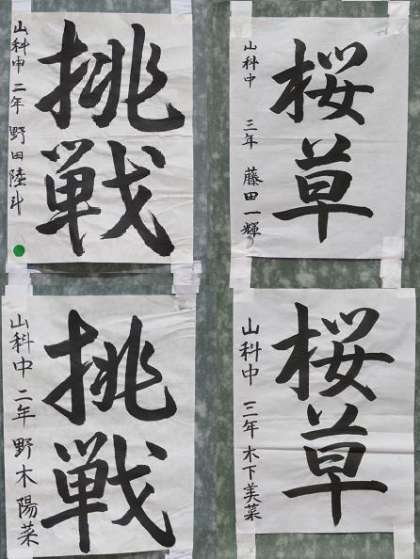 挑戦
山科中 二年 野田陸斗
桜草
山科中 三年 藤田一輝
挑戦
山科中 二年 野木陽菜
桜草
山科中 三年 木下美菜